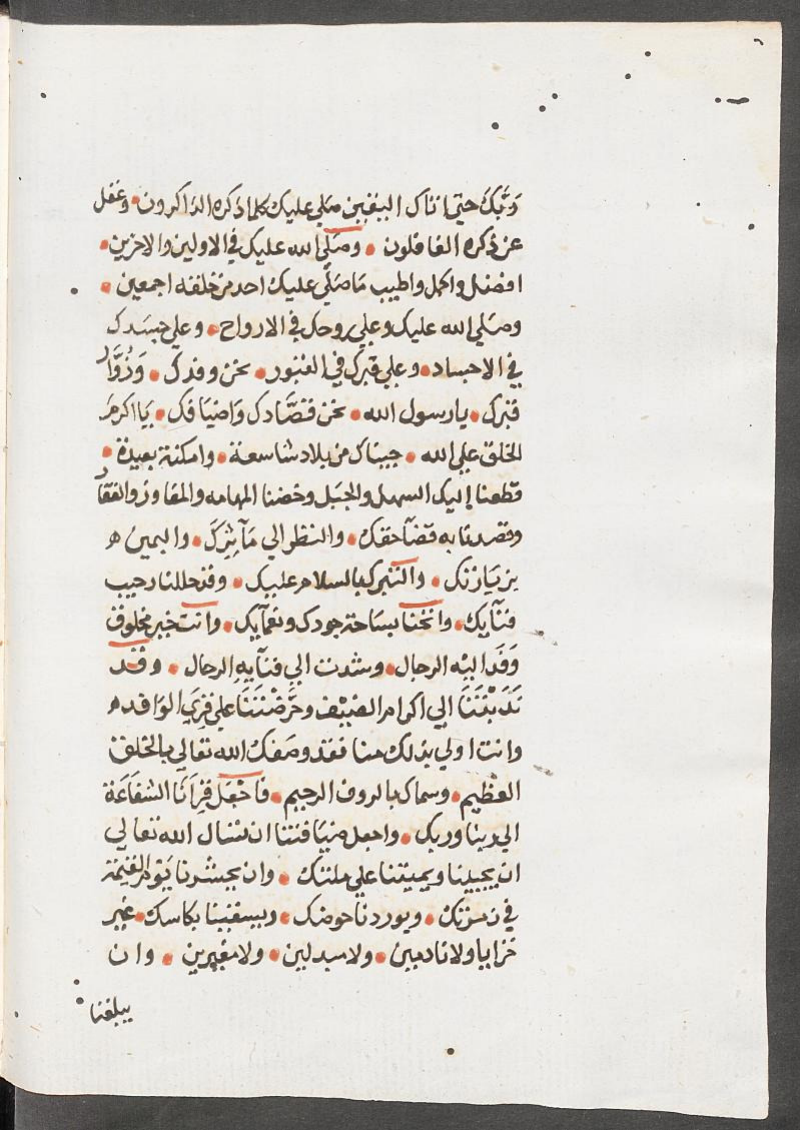 رَبَّكَ حتي اتاك اليقين صلي عليك كلما ذكره الذاكرون • وغفل
عن ذكره الغافلون • وصلي الله عليك في الاولين والاخرين •
افضل واكمل واطيب مَا صَلّي عليك احد من خلقه اجمعين •
وصلي الله عليك وعلي روحك في الارواح • وعلي جسَدك
في الاجساد • وعلي قبرك في القبور • نحن وفدك • وَزُوَّار
قبرك • يا رسول الله • نحن قصَّادك وَاضيَافك • يَا اكرمَ
الخلق علي الله • جيناك من بلاد شاسعة • وامكنة بعيدة •
قطعنا إليك السهل والجبَل وخضنا المهامه والمفاوز والقفار
وقصدنا به قضآ حقك • والنظر الي مَآثِرِكَ • واليمن ه
بزيَارتك • والتبرك بالسلام عليك • وقد حللنا رحيب
فنآيك • وانخنا بسَاحة جودك ونعمآيك • وانت خير مخلوق
وَفَدَ اليْه الرجال • وشدت الي فنآيهِ الرحال • وقد
نَدَبْتَنَا الي اكرام الضيْف وحَرَّضْتَنَا علي قِرَي الوَافد ه
وانت اولي بذلك منا فقد وصَفك الله تعالي بالخلق
العظيم • وسماك بالروف الرحيم • فاجْعَل قِرَانَا الشفَاعَة
الي ربنا وربك • واجعل ضيَافتنا ان تسال الله تعالي
ان يحيينا ويميتنا علي ملتك • وان يحشرنا يَوْم القيمة
في زمرتك • ويوردنا حوضك • ويسقينا بكاسك • غير
خزايا ولا نادمين • ولا مبدلين • ولا مغيرين • وان
يبلغنا